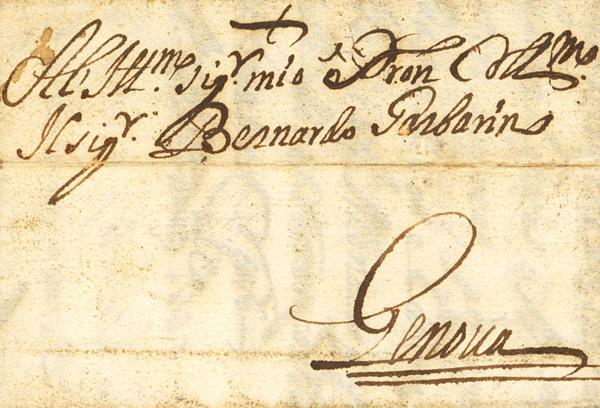 Al Ill.mo sig.r mio e Pron Coll.mo
Il sig.r Bernardo Garbarino
Genova